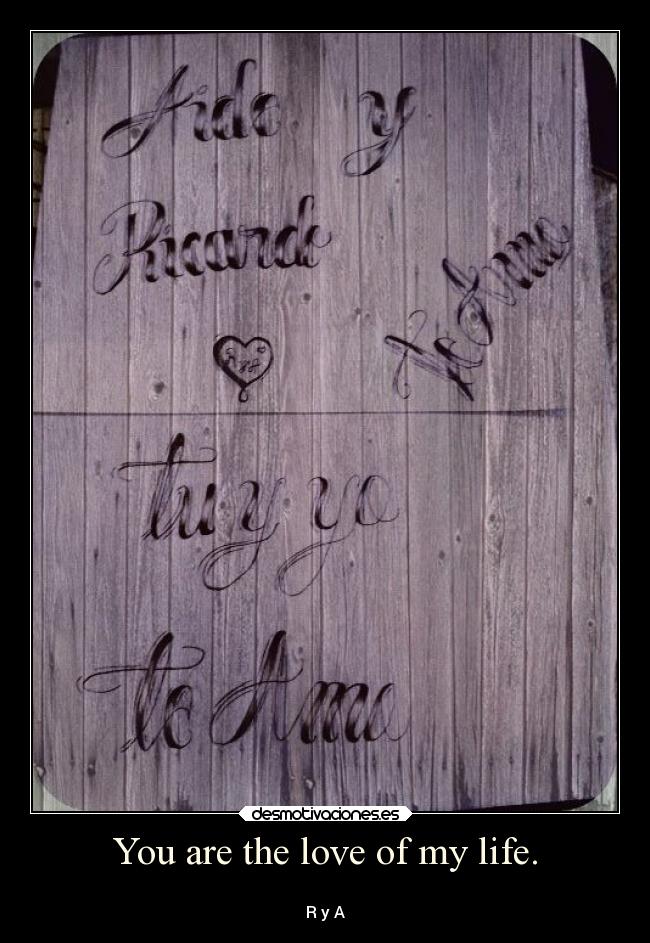 Aida y
Ricardo
Te Amo
RyA
tu y yo
te Amo
desmotivaciones.es
You are the love of my life.
R y A